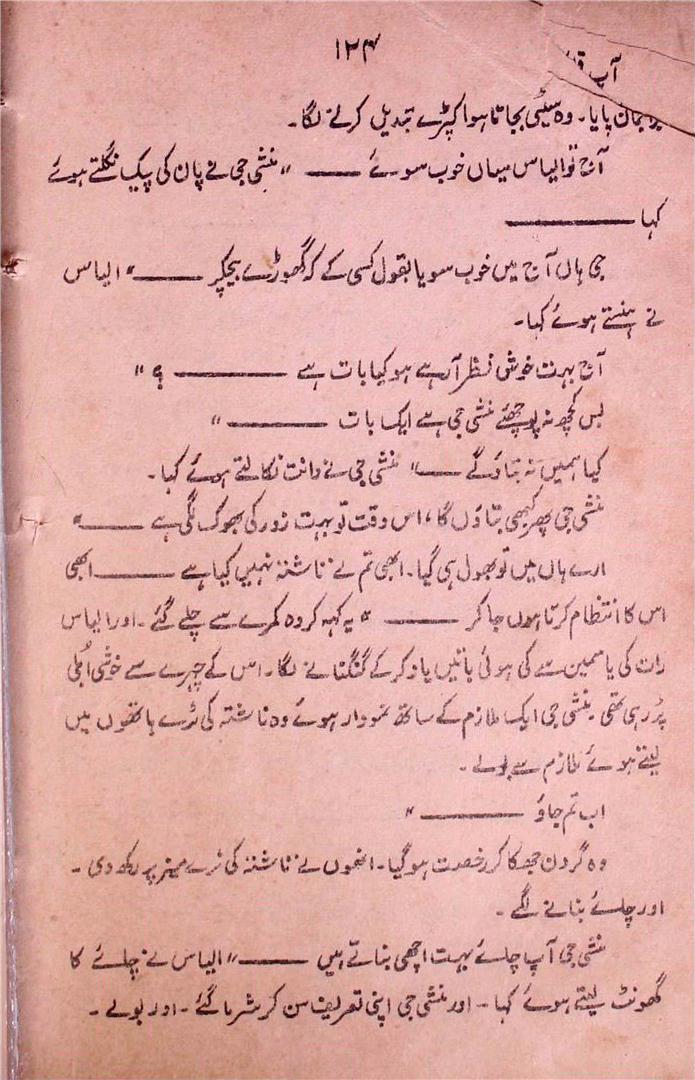 ۱۲۴
آپ
پایا۔ وہ سیٹی بجاتا ہوا کپڑے تبدیل کرنے لگا۔
آج تو الیاس میاں خوب سوئے ——— " منشی جی نے پان کی پیک نگلتے ہوئے
کہا ———
جی ہاں آج میں خوب سویا بقول کسی کے کہ گھوڑے بیچکر ——— " الیاس
نے ہنستے ہوئے کہا۔
آج بہت خوش نظر آرہے ہو کیا بات ہے ——— ؟ "
بس کچھ نہ پوچھئے منشی جی ہے ایک بات ——— "
کیا ہمیں نہ بتاؤگے —— " منشی جی نے دانت نکالتے ہوئے کہا۔
منشی جی پھر کبھی بتاؤں گا، اس وقت تو بہت زور کی بھوک لگی ہے ——— "
ارے ہاں میں تو بھول ہی گیا۔ ابھی تم نے ناشتہ نہیں کیا ہے ——— ابھی
اس کا انتظام کرتا ہوں جا کر ——— " یہ کہہ کر وہ کمرے سے چلے گئے۔ اور الیاس
رات کی یاسمین سے کی ہوئی باتیں یاد کرکے گنگنانے لگا۔ اس کے چہرے سے خوشی اُبلی
پڑ رہی تھی۔ منشی جی ایک ملازم کے ساتھ نمودار ہوئے وہ ناشتہ کی ٹرے ہاتھوں میں
لیتے ہوئے ملازم سے بولے۔
اب تم جاؤ ——— "
وہ گردن جھکا کر رخصت ہوگیا۔ انھوں نے ناشتہ کی ٹرے میز پر رکھ دی۔
اور چائے بنانے لگے۔
منشی جی آپ چائے بہت اچھی بناتے ہیں ——— " الیاس نے چائے کا
گھونٹ لیتے ہوئے کہا۔ اور منشی جی اپنی تعریف سن کر شرما گئے۔ اور بولے۔